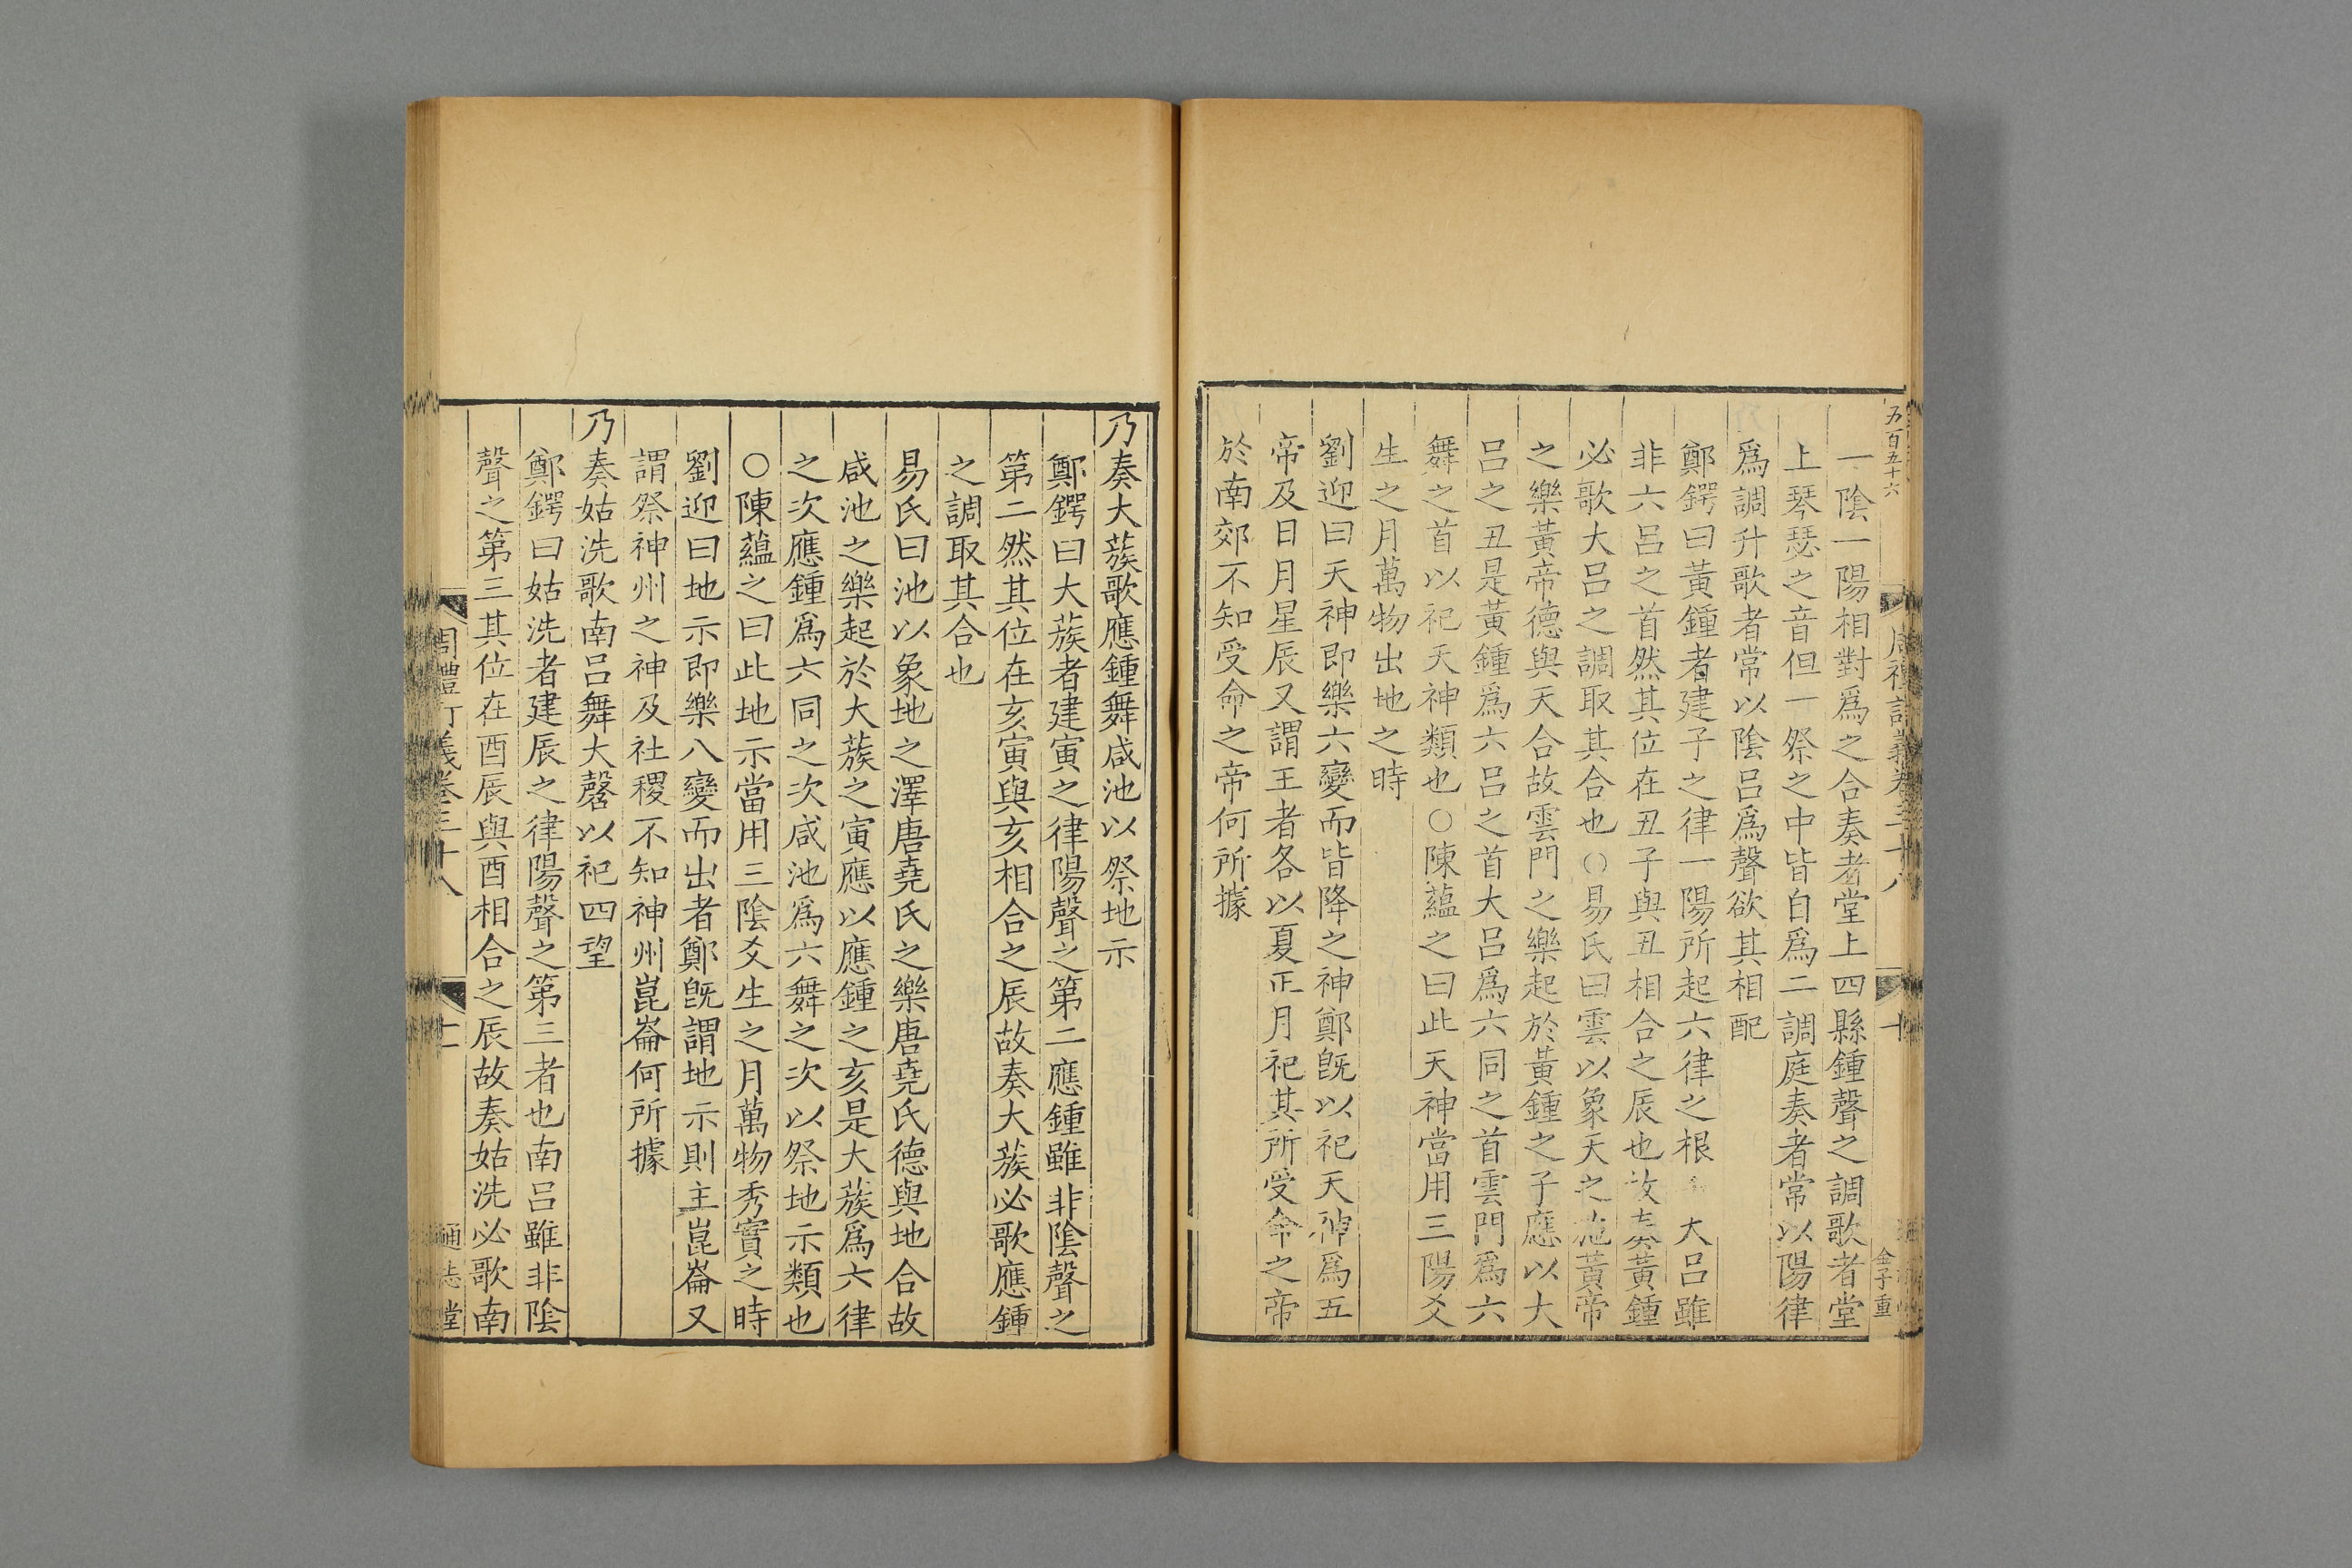 五百五十六
一陰一陽相對爲之合奏者堂上四縣鍾聲之調歌者堂
上琴瑟之音但一祭之中皆自爲二調庭奏者常以陽律
爲調升歌者常以陰呂爲聲欲其相配
鄭鍔曰黃鍾者建子之律一陽所起六律之根 大呂雖
非六呂之首然其位在丑子與丑相合之辰也故奏黃鍾
必歌大呂之調取其合也○易氏曰雲以象天之施黃帝
之樂黃帝德與天合故雲門之樂起於黃鍾之子應以大
呂之丑是黃鍾爲六呂之首大呂爲六同之首雲門爲六
舞之首以祀天神類也○陳蘊之曰此天神當用三陽爻
生之月萬物出地之時
劉迎曰天神即樂六變而皆降之神鄭旣以祀天神爲五
帝及日月星辰又謂王者各以夏正月祀其所受命之帝
於南郊不知受命之帝何所據
周禮訂義卷三十八
十
金子重
乃奏大蔟歌應鍾舞咸池以祭地示
鄭鍔曰大蔟者建寅之律陽聲之第二應鍾雖非陰聲之
第二然其位在亥寅與亥相合之辰故奏大蔟必歌應鍾
之調取其合也
易氏曰池以象地之澤唐堯氏之樂唐堯氏德與地合故
咸池之樂起於大蔟之寅應以應鍾之亥是大蔟爲六律
之次應鍾爲六同之次咸池爲六舞之次以祭地示類也
○陳蘊之曰此地示當用三陰爻生之月萬物秀實之時
劉迎曰地示即樂八變而出者鄭旣謂地示則主崑崙又
謂祭神州之神及社稷不知神州崑崙何所據
乃奏姑洗歌南呂舞大磬以祀四望
鄭鍔曰姑洗者建辰之律陽聲之第三者也南呂雖非陰
聲之第三其位在酉辰與酉相合之辰故奏姑洗必歌南
周禮訂義卷三十八
十一
通志堂